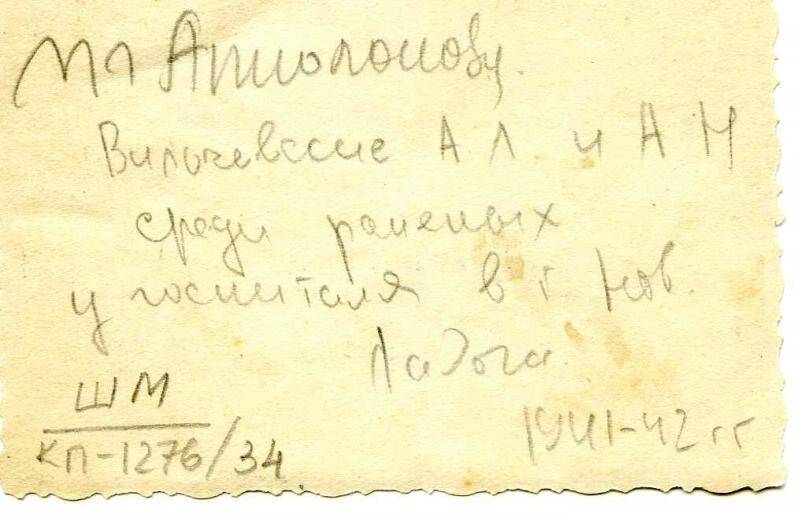 Вильчевские А Л. и А Н
среди раненых
у госпиталя в г Нов.
Ладога
1941-42 гг
ШМ
КП-1276/34